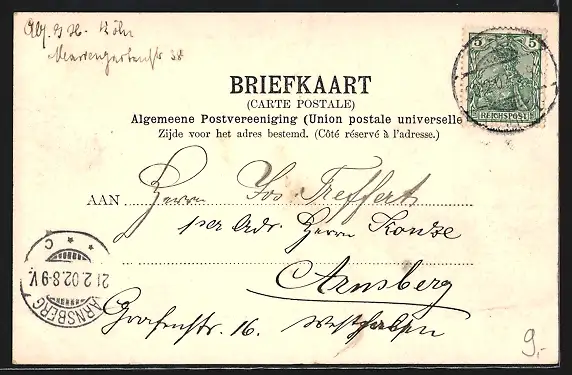 Abs. G H. Köln
Mauritiussteinstr 38
5 5
REICHSPOST
BRIEFKAART
(CARTE POSTALE)
Algemeene Postvereeniging (Union postale universelle
Zijde voor het adres bestemd. (Côté réservé à l'adresse.)
AAN Herrn Jos Treffert
per Adr. Herrn Konze
Arnsberg
Grafenstr. 16. Westfalen
ARNSBERG
21.2.02.8-9V.
* * C
9,-